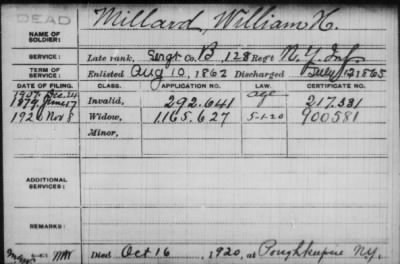 DEAD
Millard, William H.
NAME OF
SOLDIER:
SERVICE:
Late rank, Sergt Co. B, 128 Regt N.Y. Inf
TERM OF
SERVICE:
Enlisted Aug 10, 1862 Discharged July 12 1865
DATE OF FILING. CLASS. APPLICATION NO. LAW. CERTIFICATE NO.
1907. Dec. 24 age
1879, June 17 Invalid, 292.641 217.331
1920 Nov 8 Widow, 1165.627 5-1-20 900581
Minor,
ADDITIONAL
SERVICES:
REMARKS:
Died Oct 16 1920, at Poughkeepsie N.Y.